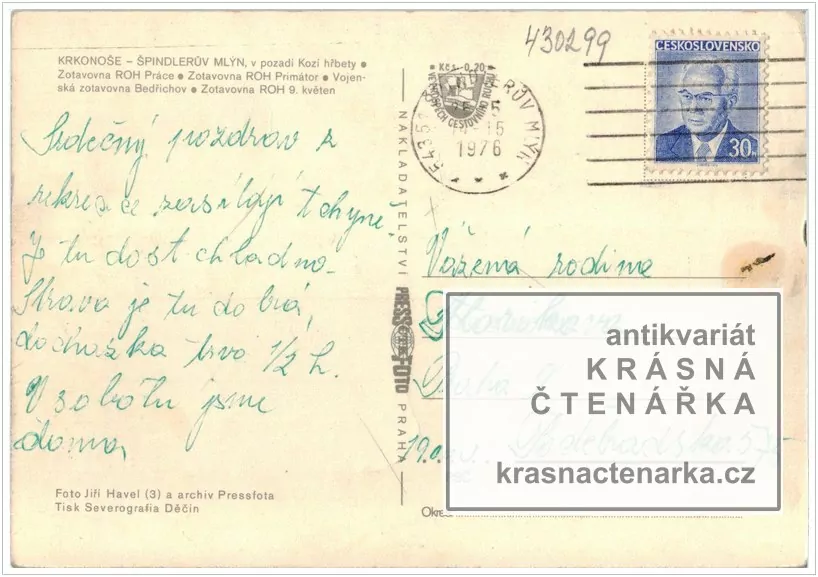 430299
KRKONOŠE – ŠPINDLERŮV MLÝN, v pozadí Kozí hřbety •
Zotavovna ROH Práce • Zotavovna ROH Primátor • Vojen-
ská zotavovna Bedřichov • Zotavovna ROH 9. květen
Srdečný pozdrav z
rekreace zasílají tchyně!
Je tu dost chladno.
Strava je tu dobrá,
docházka trvá 1/2 h.
V sobotu jsme
doma,
Foto Jiří Havel (3) a archiv Pressfota
Tisk Severografia Děčín
NAKLADATELSTVÍ PRESSFOTO PRAHA
Kčs 0,20
CESTOVNÍHO RUCHU
543 51
RŮV MLÝN
1976
ČESKOSLOVENSKO
30
Vážená rodina
Praha 9
19.0
Okres
antikvariát
KRÁSNÁ
ČTENÁŘKA
krasnactenarka.cz